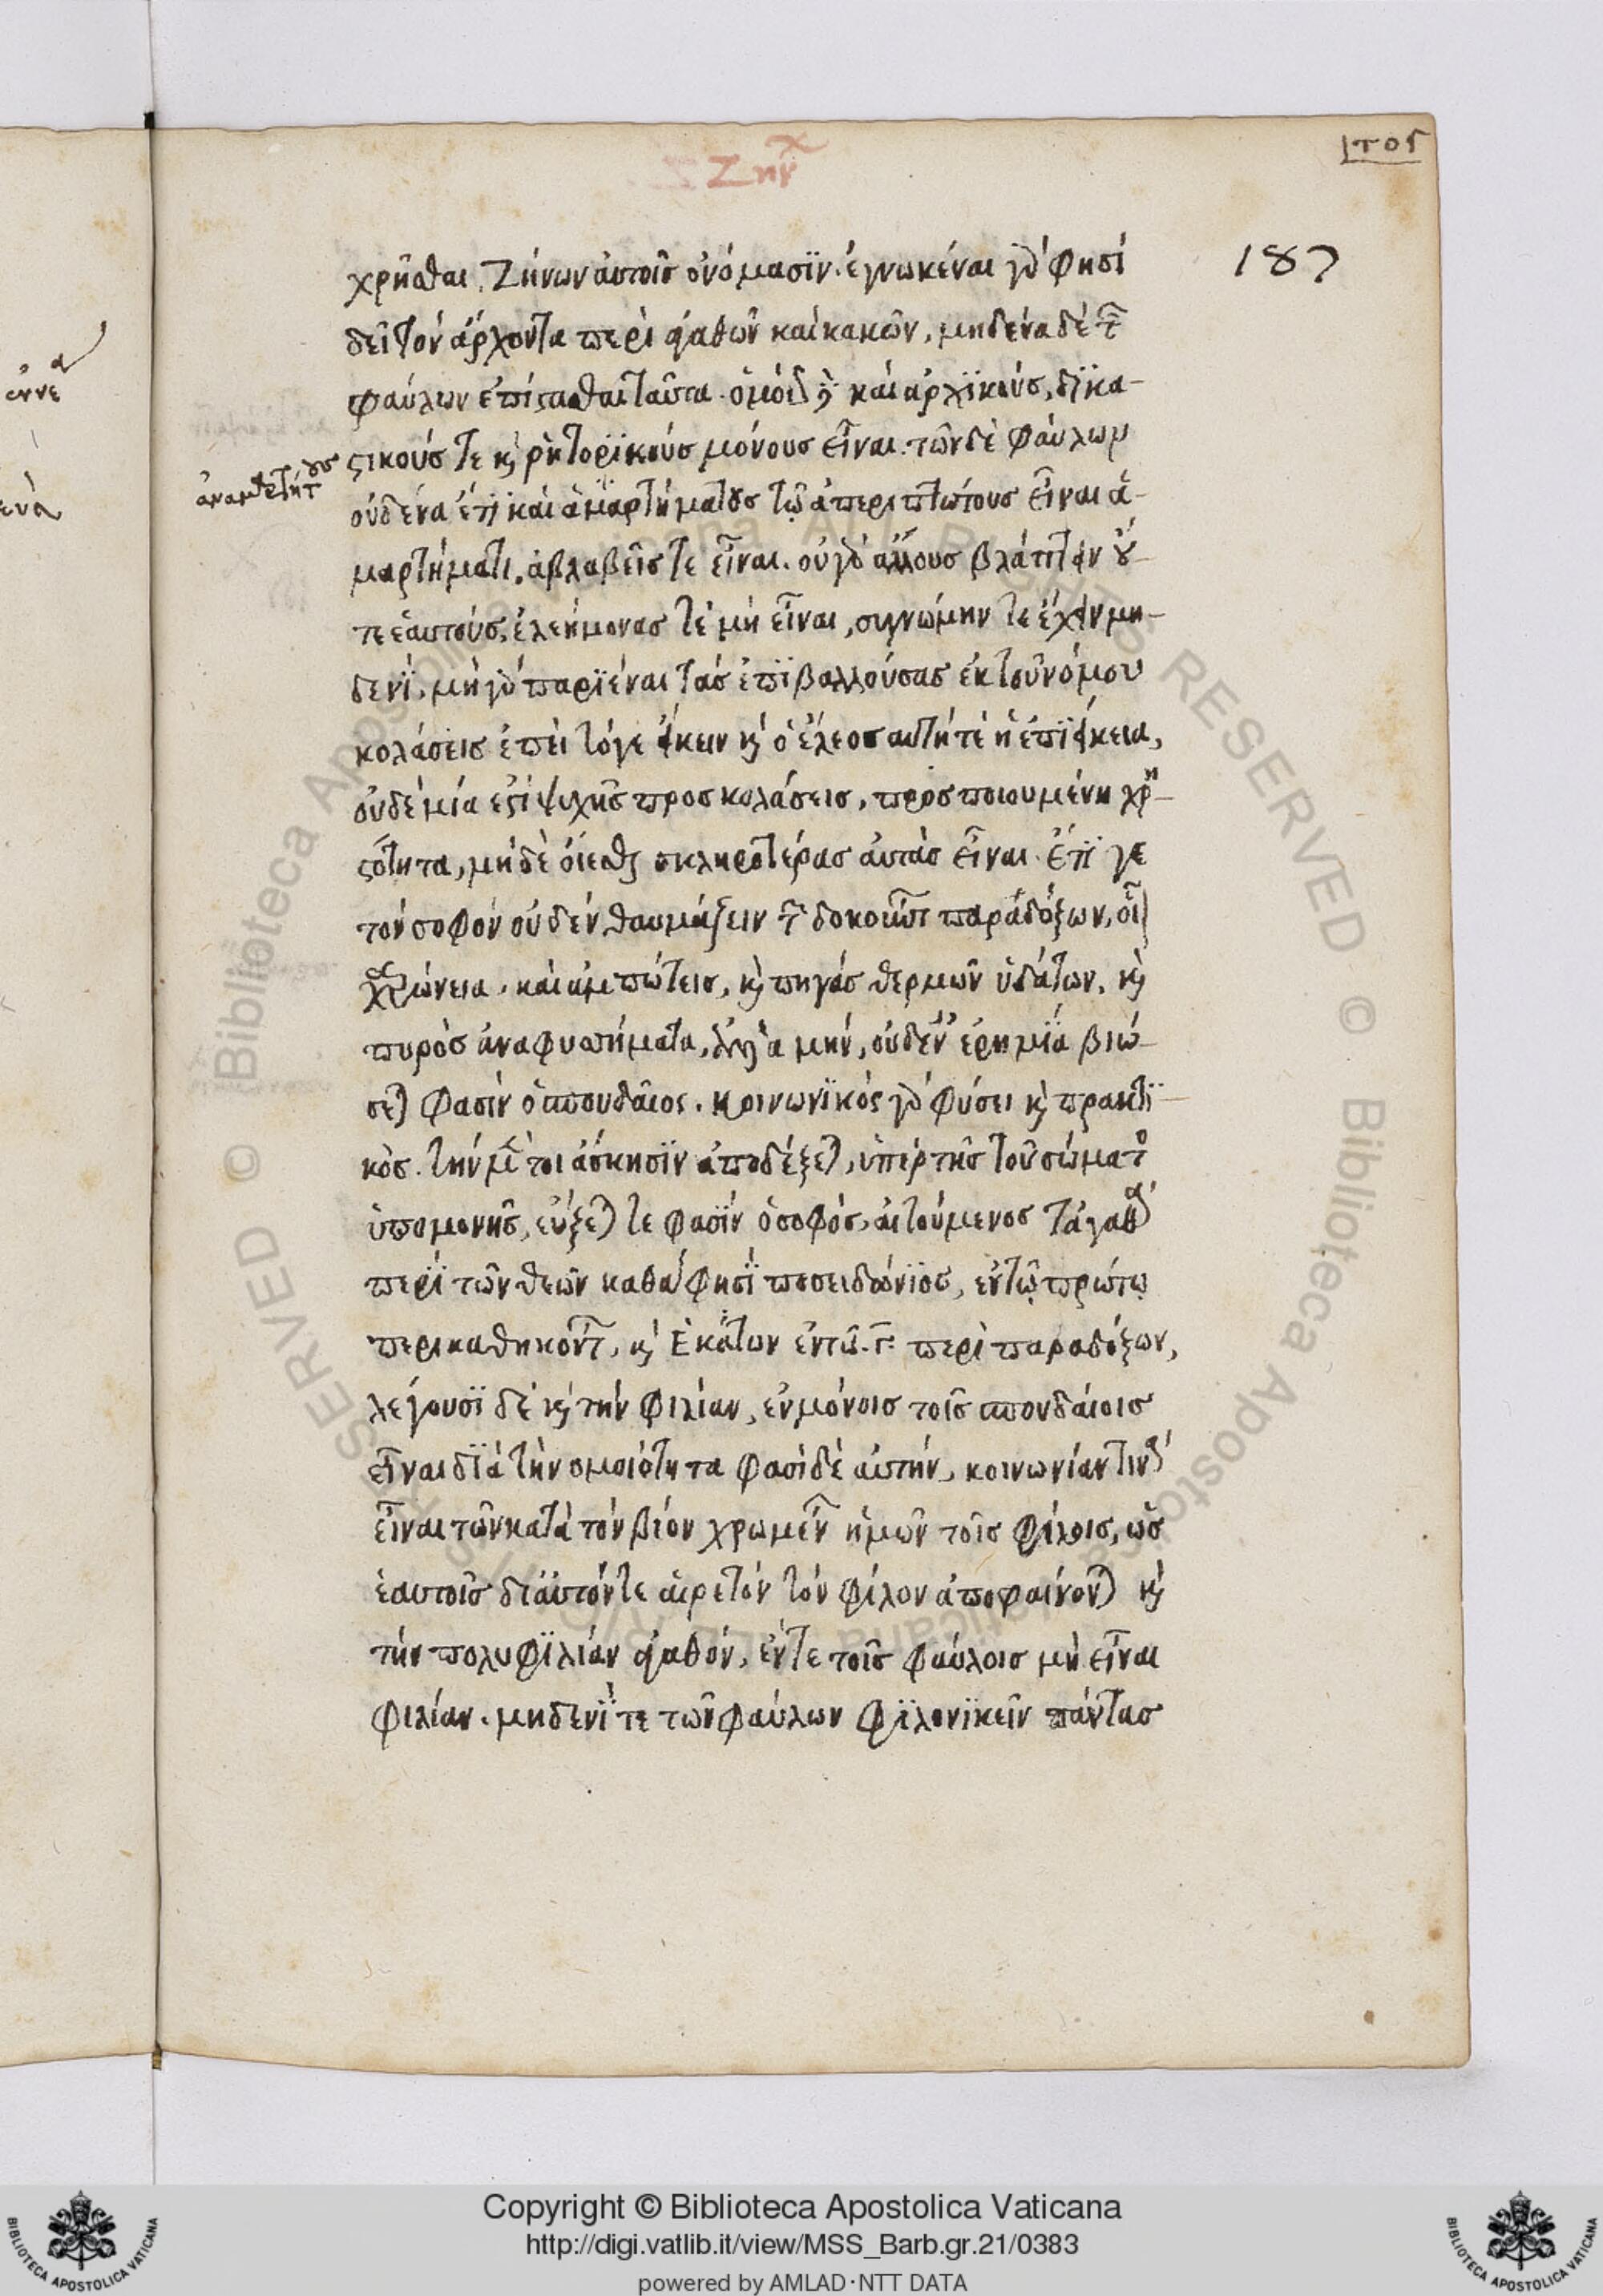 Ζήν
ͺτος
187
χρῆσθαι, Ζήνων ἀυτοῖς ὀνόμασϊν. ἐγνωκέναι γὰρ φησί
δεῖ τὸν ἄρχοντα περὶ ἀγαθῶν καὶ κακῶν, μηδένα δὲ τῶν
φαύλων ἐπίϛασθαι ταῦτα. ὁμοίως δὲ καὶ ἀρχϊκοὺς, δϊκα-
ϛικούς τε κ̀ ῥητορϊκοὺς μόνους εἶναι. τῶν δὲ φάυλων
ἀναμαρτήτους
οὐδένα ἔτϊ καὶ ἁμαρτήματους τῶ ἀπεριπτώτους εἶναι ἁ-
μαρτήματι. ἀβλαβεῖς τε εἶναι. οὐ γὰρ ἄλλους βλάπτειν οὔ-
τε ἑαυτούς, ἐλεήμονας τὲ μὴ εἶναι, συγνώμην τε ἔχειν μη-
δενϊ. μὴ γὰρ παρϊέναι τὰς ἐπϊβαλλούσας ἐκ τοῦ νόμου
κολάσεις ἐπεὶ τόγε εἴκειν κ̀ ὁ ἔλεος αυτήτὲ ἡ ἐπϊείκεια,
οὐδεμία ἐϛὶ ψυχῆς προς κολάσεις, προσποιουμένη χρη-
ϛότητα, μηδὲ ὀίεσθαι σκληροτέρας ἀυτὰς εἶναι. ἔτϊ γε
τὸν σοφὸν οὐδὲν θαυμάζειν τῶν δοκούντων παραδόξων, οἷον
χαρώνεια. καὶ ἀμπώτεις, κ̀ πηγὰς θερμῶν ὑδάτων, κ̀
πυρὸς ἀναφυσήματα, ἀλλὰ μὴν, οὐδεν ἐρημϊα βιώ-
σεται φασὶν ὁ σπουδᾶιος. κοινωνϊκὸς γὰρ φύσει κ̀ πρακτϊ-
κὸς. τὴν μέντοι ἄσκησϊν ἀποδέξεται, ὑπὲρ τῆς τοῦ σώματος
ὑπομονῆς, εὔξεται τε φασϊν ὁ σοφὸς, ἀιτούμενος τἀγαθὰ
περϊ τῶν θεῶν καθα φησϊ ποσειδώνϊος, ἐν τῶ πρώτω
περι καθηκόντων, κ̀ Ἑκάτων ἐν τῶ.γ. περὶ παραδόξων,
λέγουσϊ δὲ κ̀ τὴν φιλίαν, ἐν μόνοις τοῖς σπουδάιοις
εἶναι δϊὰ τὴν ομοιότητα φασὶ δὲ ἀυτὴν, κοινωνίαν τινὰ
εἶναι τῶν κατὰ τὸν βίον χρωμένων ἡμῶν τοῖς φίλοις, ὡς
ἑαυτοῖς δι αὑτόν τε ἁιρετὸν τὸν φίλον ἀποφαίνονται κ̀
τὴν πολυφϊλίαν ἀγαθόν, ἔν τε τοῖς φαύλοις μὴ εἶναι
φιλίαν. μηδενϊ τε τῶν φαύλων φϊλονϊκεῖν πάντας
Copyright © Biblioteca Apostolica Vaticana
http://digi.vatlib.it/view/MSS_Barb.gr.21/0383
powered by AMLAD·NTT DATA
BIBLIOTECA APOSTOLICA VATICANA
BIBLIOTECA APOSTOLICA VATICANA